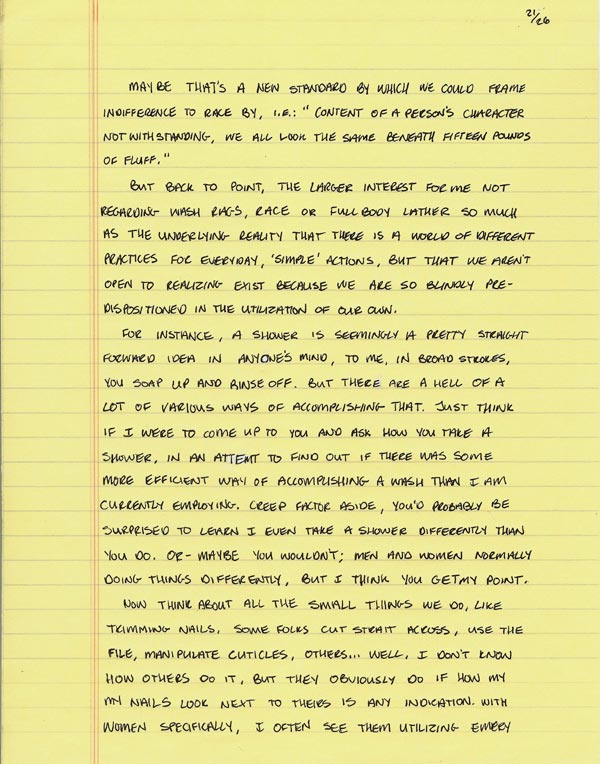 21/26
MAYBE THAT'S A NEW STANDARD BY WHICH WE COULD FRAME
INDIFFERENCE TO RACE BY, I.E.: "CONTENT OF A PERSON'S CHARACTER
NOT WITHSTANDING, WE ALL LOOK THE SAME BENEATH FIFTEEN POUNDS
OF FLUFF."
BUT BACK TO POINT, THE LARGER INTEREST FOR ME NOT
REGARDING WASH RAGS, RACE OR FULL BODY LATHER SO MUCH
AS THE UNDERLYING REALITY THAT THERE IS A WORLD OF DIFFERENT
PRACTICES FOR EVERYDAY, 'SIMPLE' ACTIONS, BUT THAT WE AREN'T
OPEN TO REALIZING EXIST BECAUSE WE ARE SO BLINDLY PRE-
DISPOSITIONED IN THE UTILIZATION OF OUR OWN.
FOR INSTANCE, A SHOWER IS SEEMINGLY A PRETTY STRAIGHT
FORWARD IDEA IN ANYONE'S MIND, TO ME, IN BROAD STROKES,
YOU SOAP UP AND RINSE OFF. BUT THERE ARE A HELL OF A
LOT OF VARIOUS WAYS OF ACCOMPLISHING THAT. JUST THINK
IF I WERE TO COME UP TO YOU AND ASK HOW YOU TAKE A
SHOWER, IN AN ATTEMT TO FIND OUT IF THERE WAS SOME
MORE EFFICIENT WAY OF ACCOMPLISHING A WASH THAN I AM
CURRENTLY EMPLOYING. CREEP FACTOR ASIDE, YOU'D PROBABLY BE
SURPRISED TO LEARN I EVEN TAKE A SHOWER DIFFERENTLY THAN
YOU DO. OR- MAYBE YOU WOULDN'T; MEN AND WOMEN NORMALLY
DOING THINGS DIFFERENTLY, BUT I THINK YOU GET MY POINT.
NOW THINK ABOUT ALL THE SMALL THINGS WE DO, LIKE
TRIMMING NAILS. SOME FOLKS CUT STRAIT ACROSS, USE THE
FILE, MANIPULATE CUTICLES, OTHERS... WELL, I DON'T KNOW
HOW OTHERS DO IT, BUT THEY OBVIOUSLY DO IF HOW MY
MY NAILS LOOK NEXT TO THEIRS IS ANY INDICATION. WITH
WOMEN SPECIFICALLY, I OFTEN SEE THEM UTILIZING EMERY